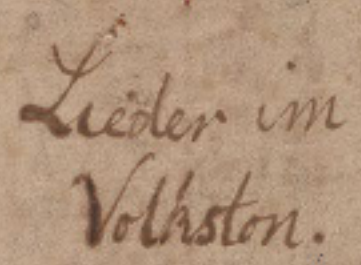 Lieder im
Volkston.